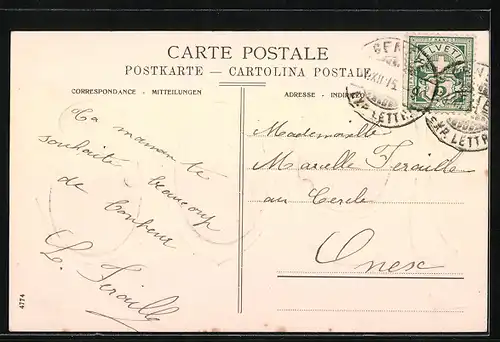 CARTE POSTALE
POSTKARTE — CARTOLINA POSTALE
CORRESPONDANCE - MITTEILUNGEN
ADRESSE - INDIRIZZO
HELVETIA
5 5
EXP. LETTR.
EXP. LETTR.
Ta maman te
souhaite beaucoup
de bonheur
L. Feraille
Mademoiselle
Marcelle Feraille
au Cercle
Onex
4774